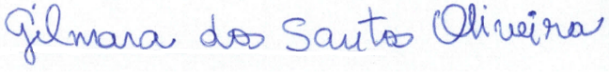 Gilmara dos Santos Oliveira